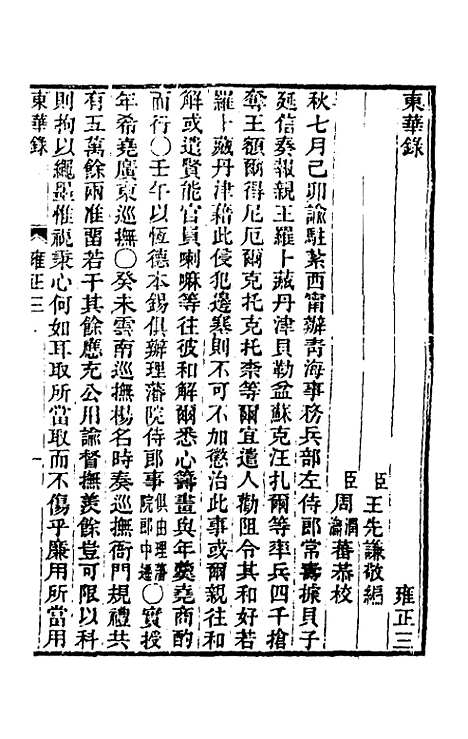 東華錄　雍正三
臣王先謙敬編
臣周潤蕃 周瀹蕃恭校
秋七月己卯諭駐紮西甯辦青海事務兵部左侍郎常壽據貝子
延信奏報親王羅卜藏丹津貝勒盆蘇克汪扎爾等率兵四千搶
奪王額爾得尼厄爾克托克托柰等爾宜遣人勸阻令其和好若
羅卜藏丹津藉此侵犯邊塞則不可不加懲治此事或爾親往和
解或遣賢能官員喇嘛等往彼和解爾悉心籌畫與年羹堯商酌
而行○壬午以恆德本錫俱辦理藩院侍郎事俱由理藩院郎中遷○實授
年希堯廣東巡撫○癸未雲南巡撫楊名時奏巡撫衙門規禮共
有五萬餘兩准畱若干其餘應充公用諭督撫羨餘豈可限以科
則拘以繩墨惟視秉心何如耳取所當取而不傷乎廉用所當用
東華錄　雍正三　一